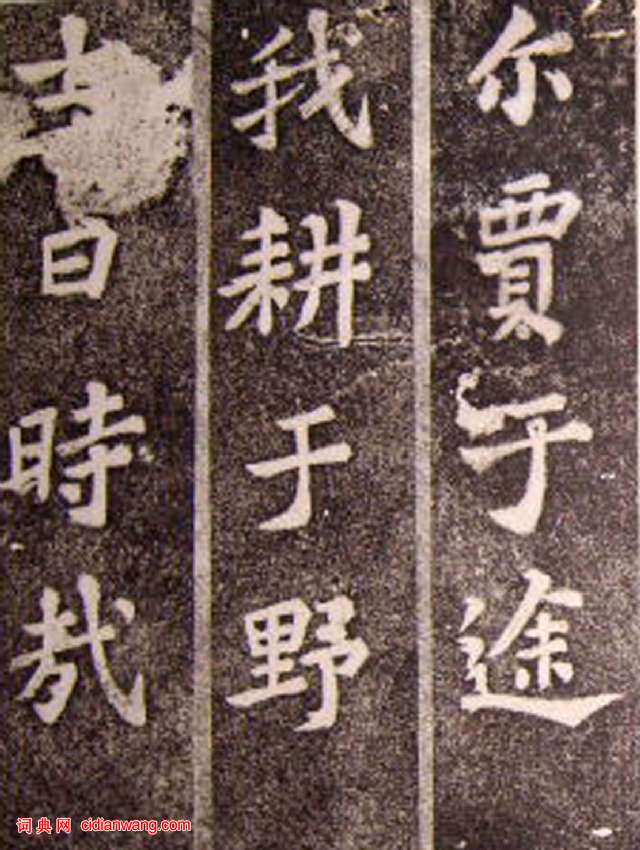 尔賈于途
我耕于野
士曰時哉
词典网 cidianwang.com